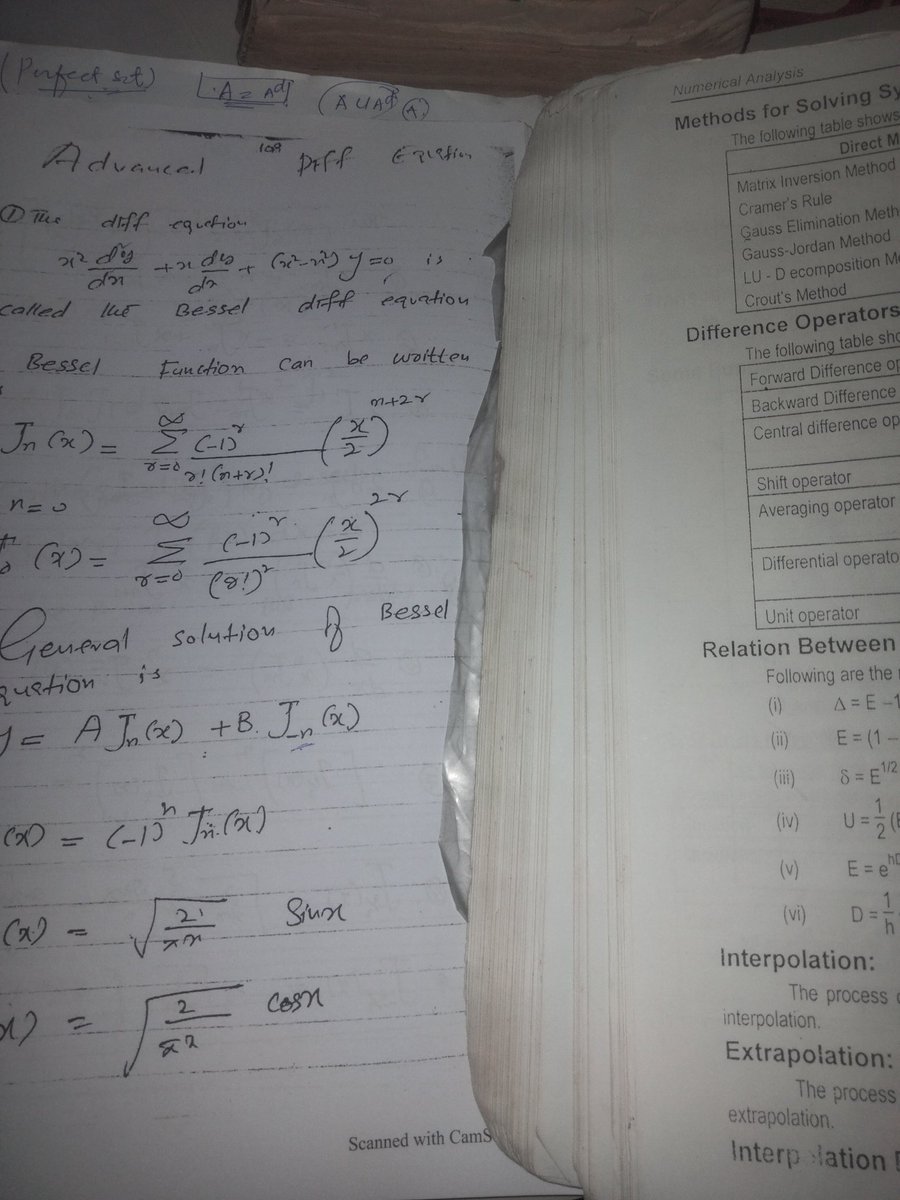 (Perfect set) A = Ad (A ∪ Ad)
Advanced Diff Equation
① The diff equation
x² d²y/dx + x dy/dx + (x²-n²) y = 0 is
called the Bessel diff equation
Bessel Function can be written
Jn(x) = ∞ Σ r=0 (-1)^r / r!(n+r)! (x/2)^n+2r
n=0
(x) = ∞ Σ r=0 (-1)^r / (r!)² (x/2)^2r
General solution of Bessel
quation is
y = A Jn(x) + B. J-n(x)
(x) = (-1)^n Jn(x)
(x) = √2/πx Sinx
x) = √2/πx cosx
Scanned with CamS
Numerical Analysis
Methods for Solving Sy
The following table shows
Direct M
Matrix Inversion Method
Cramer's Rule
Gauss Elimination Meth
Gauss-Jordan Method
LU - D ecomposition Me
Crout's Method
Difference Operators
The following table sho
Forward Difference op
Backward Difference
Central difference op
Shift operator
Averaging operator
Differential operato
Unit operator
Relation Between
Following are the
(i) Δ = E -1
(ii) E = (1 -
(iii) δ = E^1/2
(iv) U = 1/2 (E
(v) E = e^hD
(vi) D = 1/h
Interpolation:
The process
interpolation.
Extrapolation:
The process
extrapolation.
Interp lation